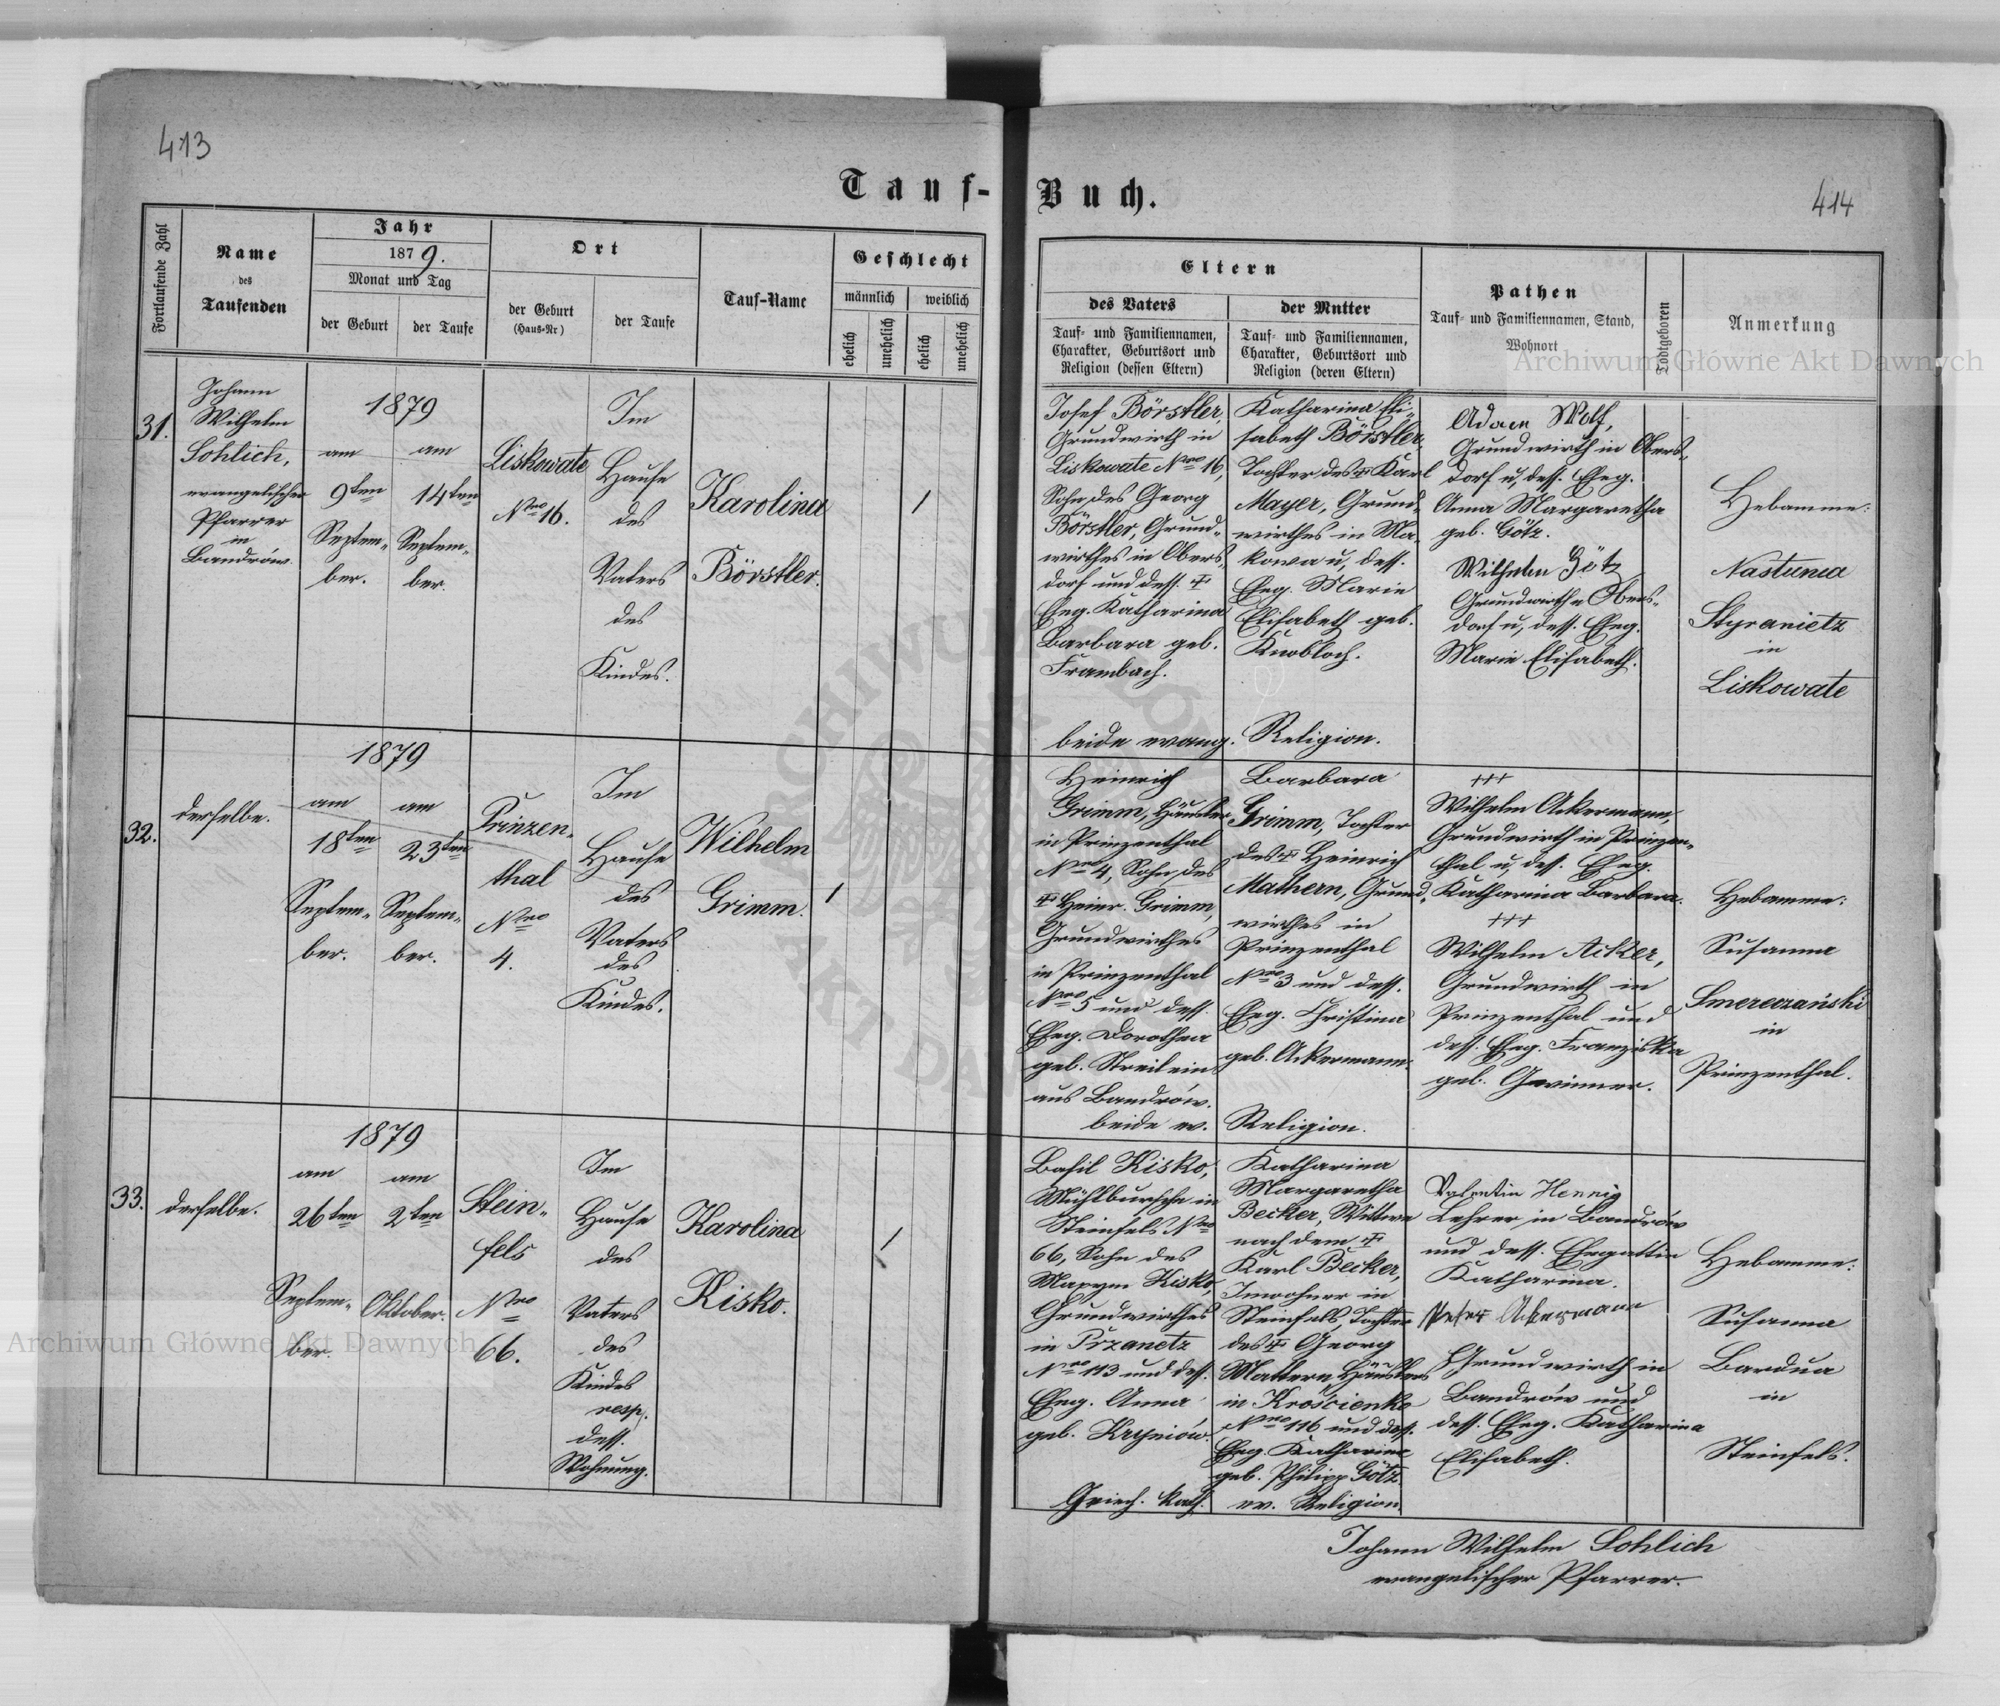 413
Tauf-
Fortlaufende Zahl
Name
des
Taufenden
Jahr
1879.
Monat und Tag
der Geburt
der Taufe
Ort
der Geburt
(Haus-Nr)
der Taufe
Tauf-Name
Geschlecht
männlich
weiblich
ehelich
unehelich
ehelich
unehelich
31.
Johann
Wilhelm
Sohlich,
evangelischer
Pfarrer
in
Bandrów
1879
am
9ten
Septem-
ber.
am
14ten
Septem-
ber.
Liskowate
Nro 16.
Im
Hause
des
Vaters
des
Kindes.
Karolina
Börstler.
1
32.
derselbe.
1879
am
18ten
Septem-
ber.
am
23ten
Septem-
ber.
Prinzen-
thal
Nro
4.
Im
Hause
des
Vaters
des
Kindes.
Wilhelm
Grimm.
1
33.
derselbe.
1879
am
26ten
Septem-
ber.
am
2ten
Oktober.
Stein-
fels
Nro
66.
Im
Hause
des
Vaters
des
Kindes
resp.
dess.
Wohnung.
Karolina
Kisko.
1
Buch.
414
Eltern
des Vaters
Tauf- und Familiennamen,
Charakter, Geburtsort und
Religion (dessen Eltern)
der Mutter
Tauf- und Familiennamen,
Charakter, Geburtsort und
Religion (deren Eltern)
Pathen
Tauf- und Familiennamen, Stand,
Wohnort
Todtgeboren
Anmerkung
Josef Börstler,
Grundwirth in
Liskowate Nro 16,
Sohn des Georg
Börstler, Grund-
wirthes in Obers-
dorf und dess. ‡
Eheg. Katharina
Barbara geb.
Frambach.
Katharina Eli-
sabeth Börstler,
Tochter des ‡ Karl
Mayer, Grund-
wirthes in Ma-
kowa u, dess.
Eheg. Marie
Elisabeth geb.
Knobloch.
beide evang. Religion.
Adam Wolf,
Grundwirth in Obers-
dorf u, dess. Eheg.
Anna Margaretha
geb. Götz.
Wilhelm Götz
Grundwirth Obers-
dorf u, dess. Eheg.
Marie Elisabeth.
Hebamme:
Nastunia
Styranietz
in
Liskowate
Heinrich
Grimm, Häusler
in Prinzenthal
Nro 4, Sohn des
‡ Heinr. Grimm,
Grundwirthes
in Prinzenthal
Nro 5 und dess.
Eheg. Dorothea
geb. Streilein
aus Bandrów.
Barbara
Grimm, Tochter
des ‡ Heinrich
Mathern, Grund-
wirthes in
Prinzenthal
Nro 3 und dess.
Eheg. Christina
geb. Ackermann.
beide ev. Religion.
+++
Wilhelm Ackermann,
Grundwirth in Prinzen-
thal u, dess. Eheg.
Katharina Barbara.
+++
Wilhelm Acker,
Grundwirth in
Prinzenthal und
dess. Eheg. Franziska
geb. Gwinner.
Hebamme:
Susanna
Smereczański
in
Prinzenthal.
Basil Kisko,
Mühlbursche in
Steinfels Nro
66, Sohn des
Maxym Kisko,
Grundwirthes
in Przanetz
Nro 113 und dess.
Eheg. Anna
geb. Kryniów.
Griech. kath.
Katharina
Margaretha
Becker, Wittwe
nach dem ‡
Karl Becker,
Inwohner in
Steinfels, Tochter
des ‡ Georg
Mattern, Häuslers
in Krościenko
Nro 116 und dess.
Eheg. Katharina
geb. Philipp Götz.
ev. Religion.
Valentin Hennig
Lehrer in Bandrów
und dess. Ehegattin
Katharina.
Peter Ackermann
Grundwirth in
Bandrów und
dess. Eheg. Katharina
Elisabeth.
Hebamme:
Susanna
Bardua
in
Steinfels.
Johann Wilhelm Sohlich
evangelischer Pfarrer.
Archiwum Główne Akt Dawnych
Archiwum Główne Akt Dawnych